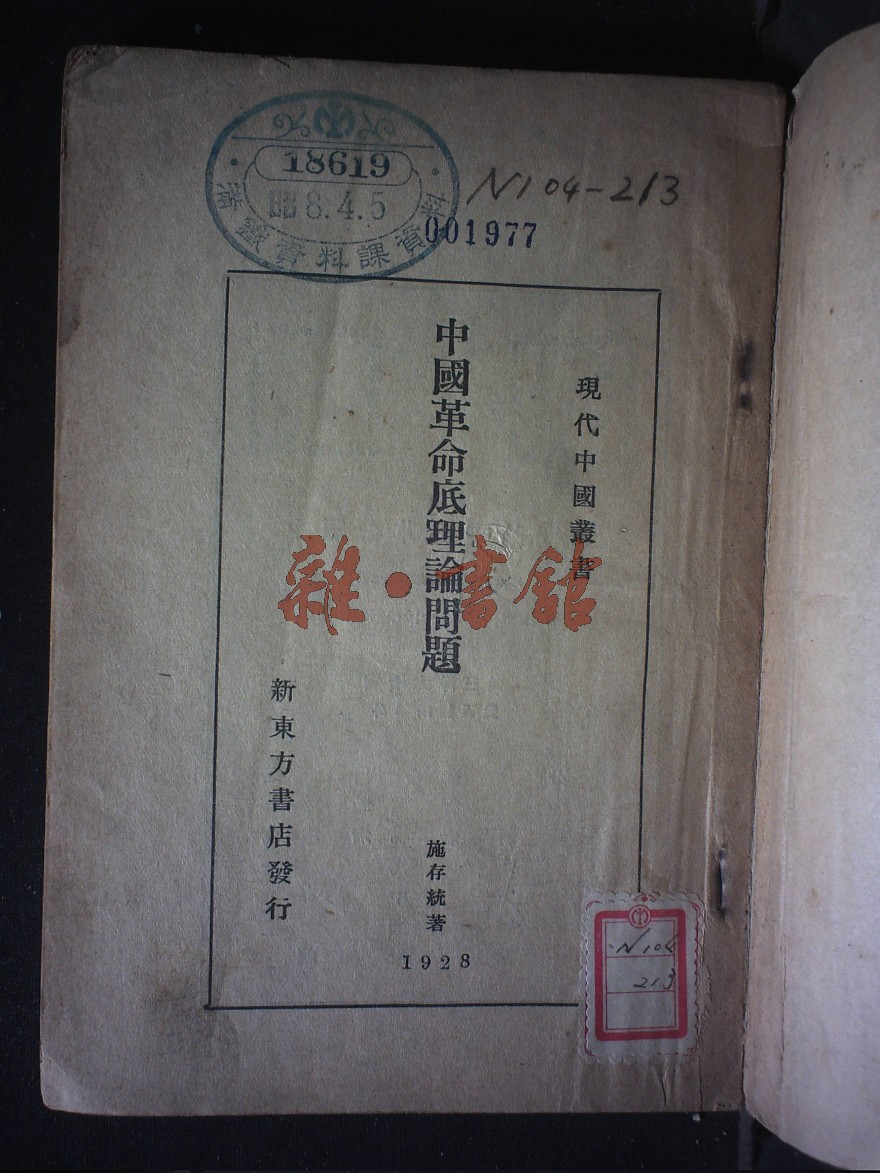 18619
昭8.4.5
滿鐵資料課資料
N104-213
001977
現代中國叢書
中國革命底理論問題
雜·書館
施存統著
1928
新東方書店發行
N104
213